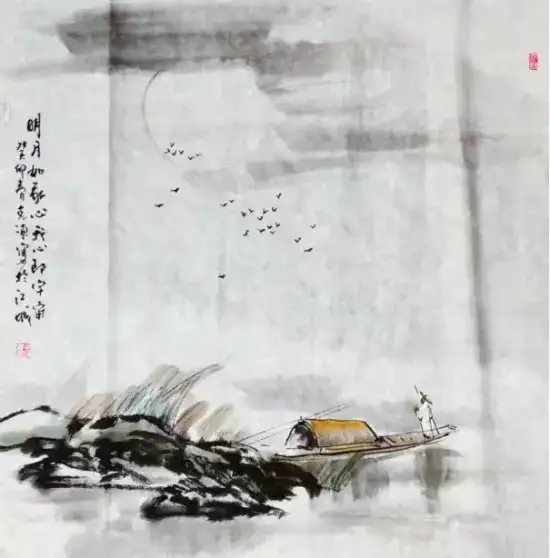 明月如我心我心即宇宙
癸卯春克源写於江城